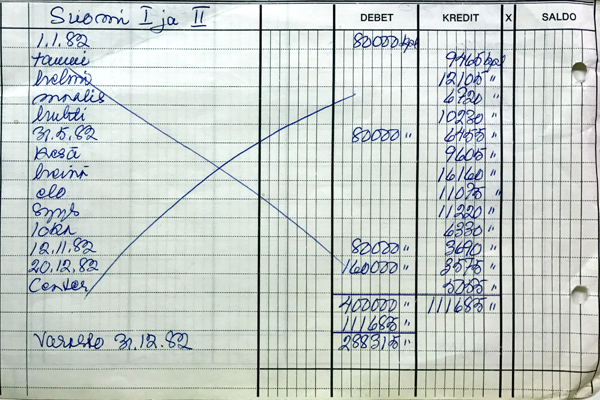 Suomi I ja II DEBET KREDIT X SALDO
1.1.82 80000 kpl
tammi 9465 kpl
helmi 12105 "
maalis 6720 "
huhti 10230 "
31.5.82 80000 " 6455 "
kesä 9605 "
heinä 16160 "
elo 11075 "
syys 11220 "
loka 6330 "
12.11.82 80000 " 3690 "
20.12.82 160000 " 3575 "
Center 5055 "
400000 " 111685 "
111685 "
Varasto 31.12.82 288315 "